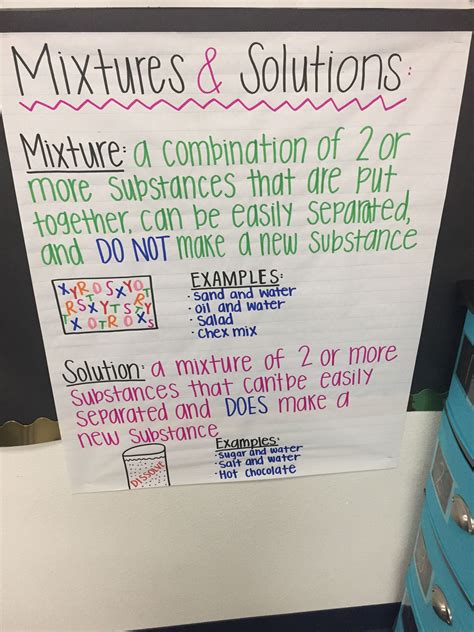 Mixtures & Solutions:
Mixture: a combination of 2 or
more substances that are put
together, can be easily separated,
and DO NOT make a new substance
EXAMPLES:
· sand and water
· oil and water
· Salad
· chex mix
Solution: a mixture of 2 or more
substances that can't be easily
separated and DOES make a
new substance
Examples:
· sugar and water
· salt and water
· Hot chocolate
DISSOLVE